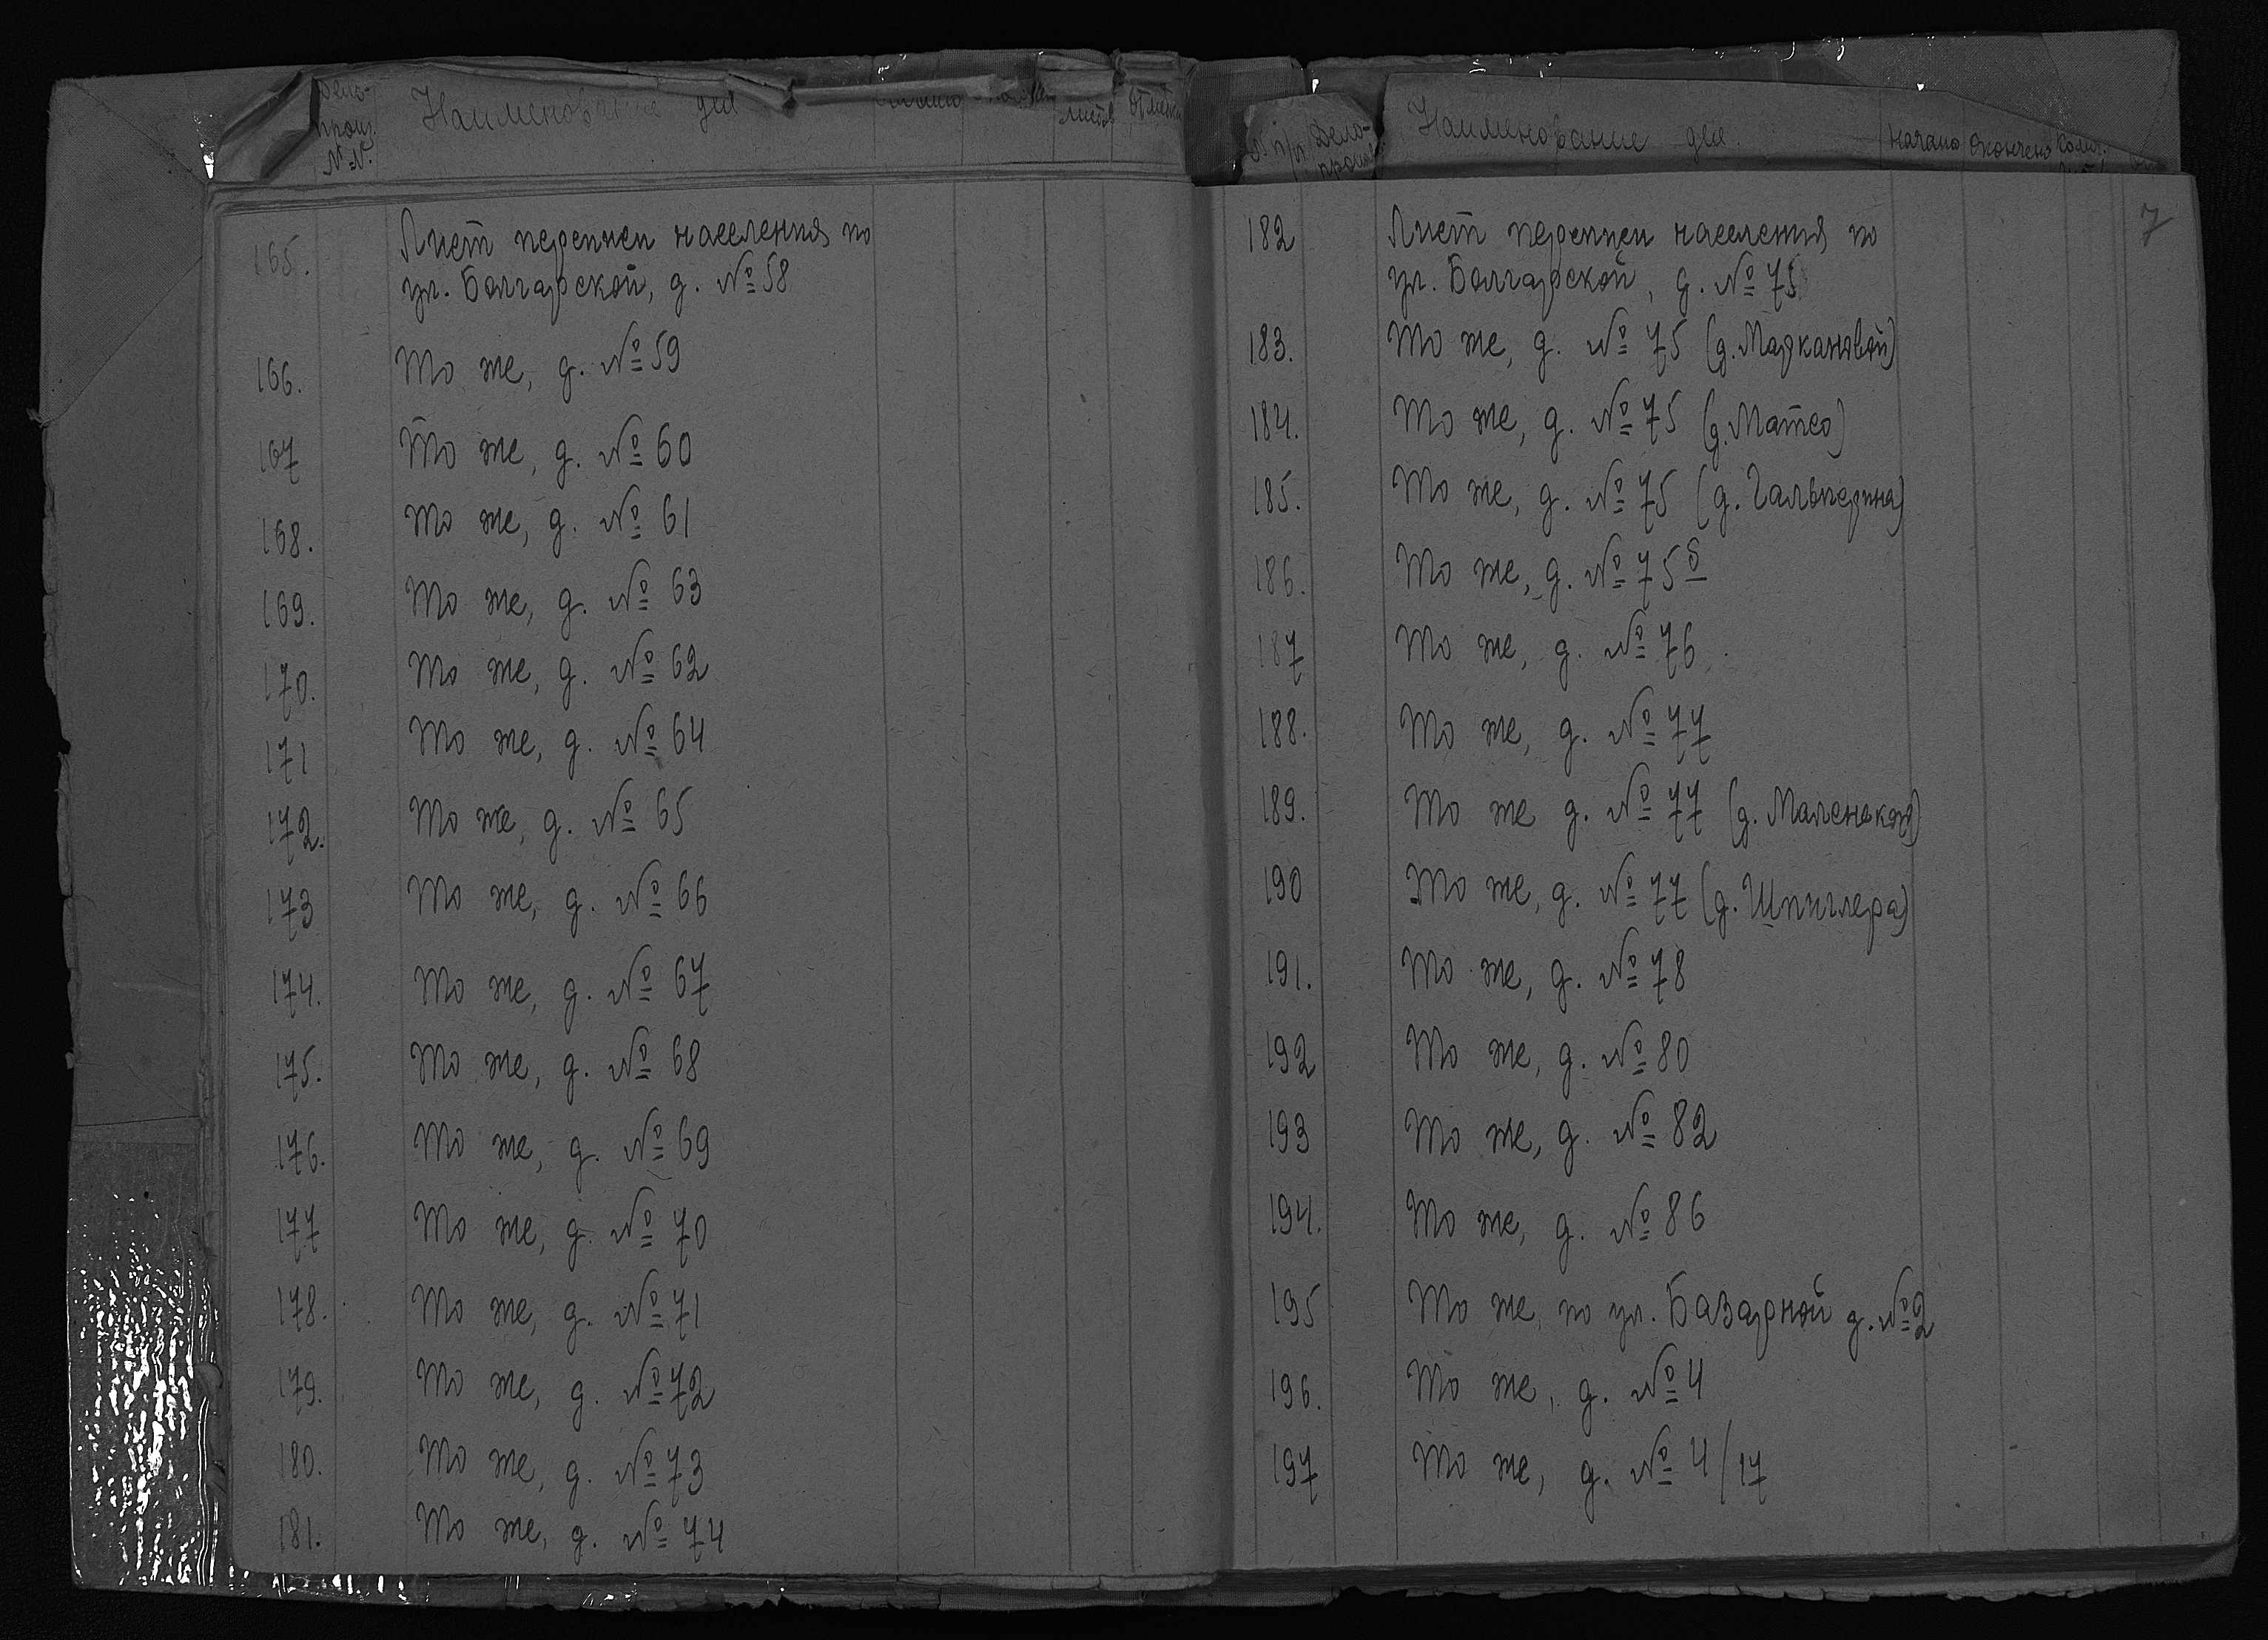 Дело-
произ.
№№
Наименование дел
листов
165. Лист переписи населения по
ул. Болгарской, д. № 58
166. То же, д. № 59
167 То же, д. № 60
168. То же, д. № 61
169. То же, д. № 63
170. То же, д. № 62
171 То же, д. № 64
172. То же, д. № 65
173 То же, д. № 66
174. То же, д. № 67
175. То же, д. № 68
176. То же, д. № 69
177 То же, д. № 70
178. То же, д. № 71
179. То же, д. № 72
180. То же, д. № 73
181. То же, д. № 74
п/п Дело-
произ.
Наименование дел. начато окончено колич.
7
182 Лист переписи населения по
ул. Болгарской, д. № 75
183. То же, д. № 75 (д. Маркановой)
184. То же, д. № 75 (д. Матео)
185. То же, д. № 75 (д. Гальперина)
186. То же, д. № 75 б
187 То же, д. № 76
188. То же, д. № 77
189. То же д. № 77 (д. Маленская)
190 То же, д. № 77 (д. Шпиглера)
191. То же, д. № 78
192 То же, д. № 80
193 То же, д. № 82
194. То же, д. № 86
195 То же, по ул. Базарной д. № 2
196. То же, д. № 4
197 То же, д. № 4/17